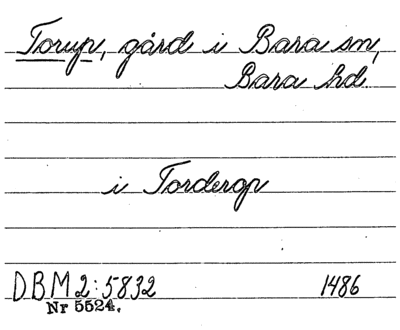 Torup, gård i Bara sn,
Bara hd
i Torderop
DBM 2:5832 1486
Nr 5524.